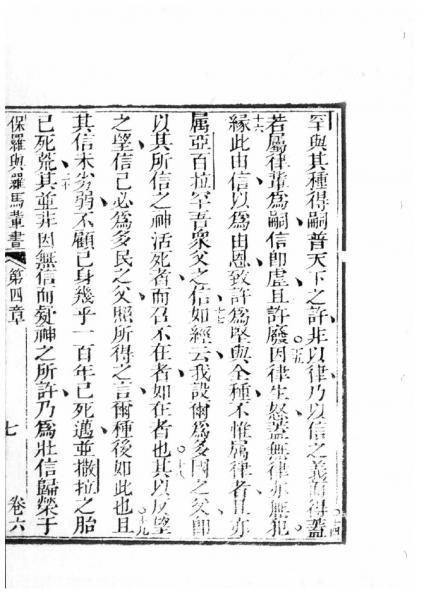 罕與其種得嗣普天下之許非以律乃以信之義而得蓋
十四
若屬律輩爲嗣信卽虛且許廢因律生怒蓋無律亦無犯
十五
緣此由信以爲由恩致許爲堅與全種不惟屬律者且亦
十六
屬亞百拉罕吾衆父之信如經云我設爾爲多國之父卽
十七
以其所信之神活死者而召不在者如在者也其以反望
十八
之望信己必爲多民之父照所得之言爾種後如此也且
十九
其信未劣弱不顧己身幾乎一百年已死邁並撒拉之胎
已死荒其並非因無信而疑神之所許乃爲壯信歸榮于
二十
保羅與羅馬輩書 第四章 七 卷六